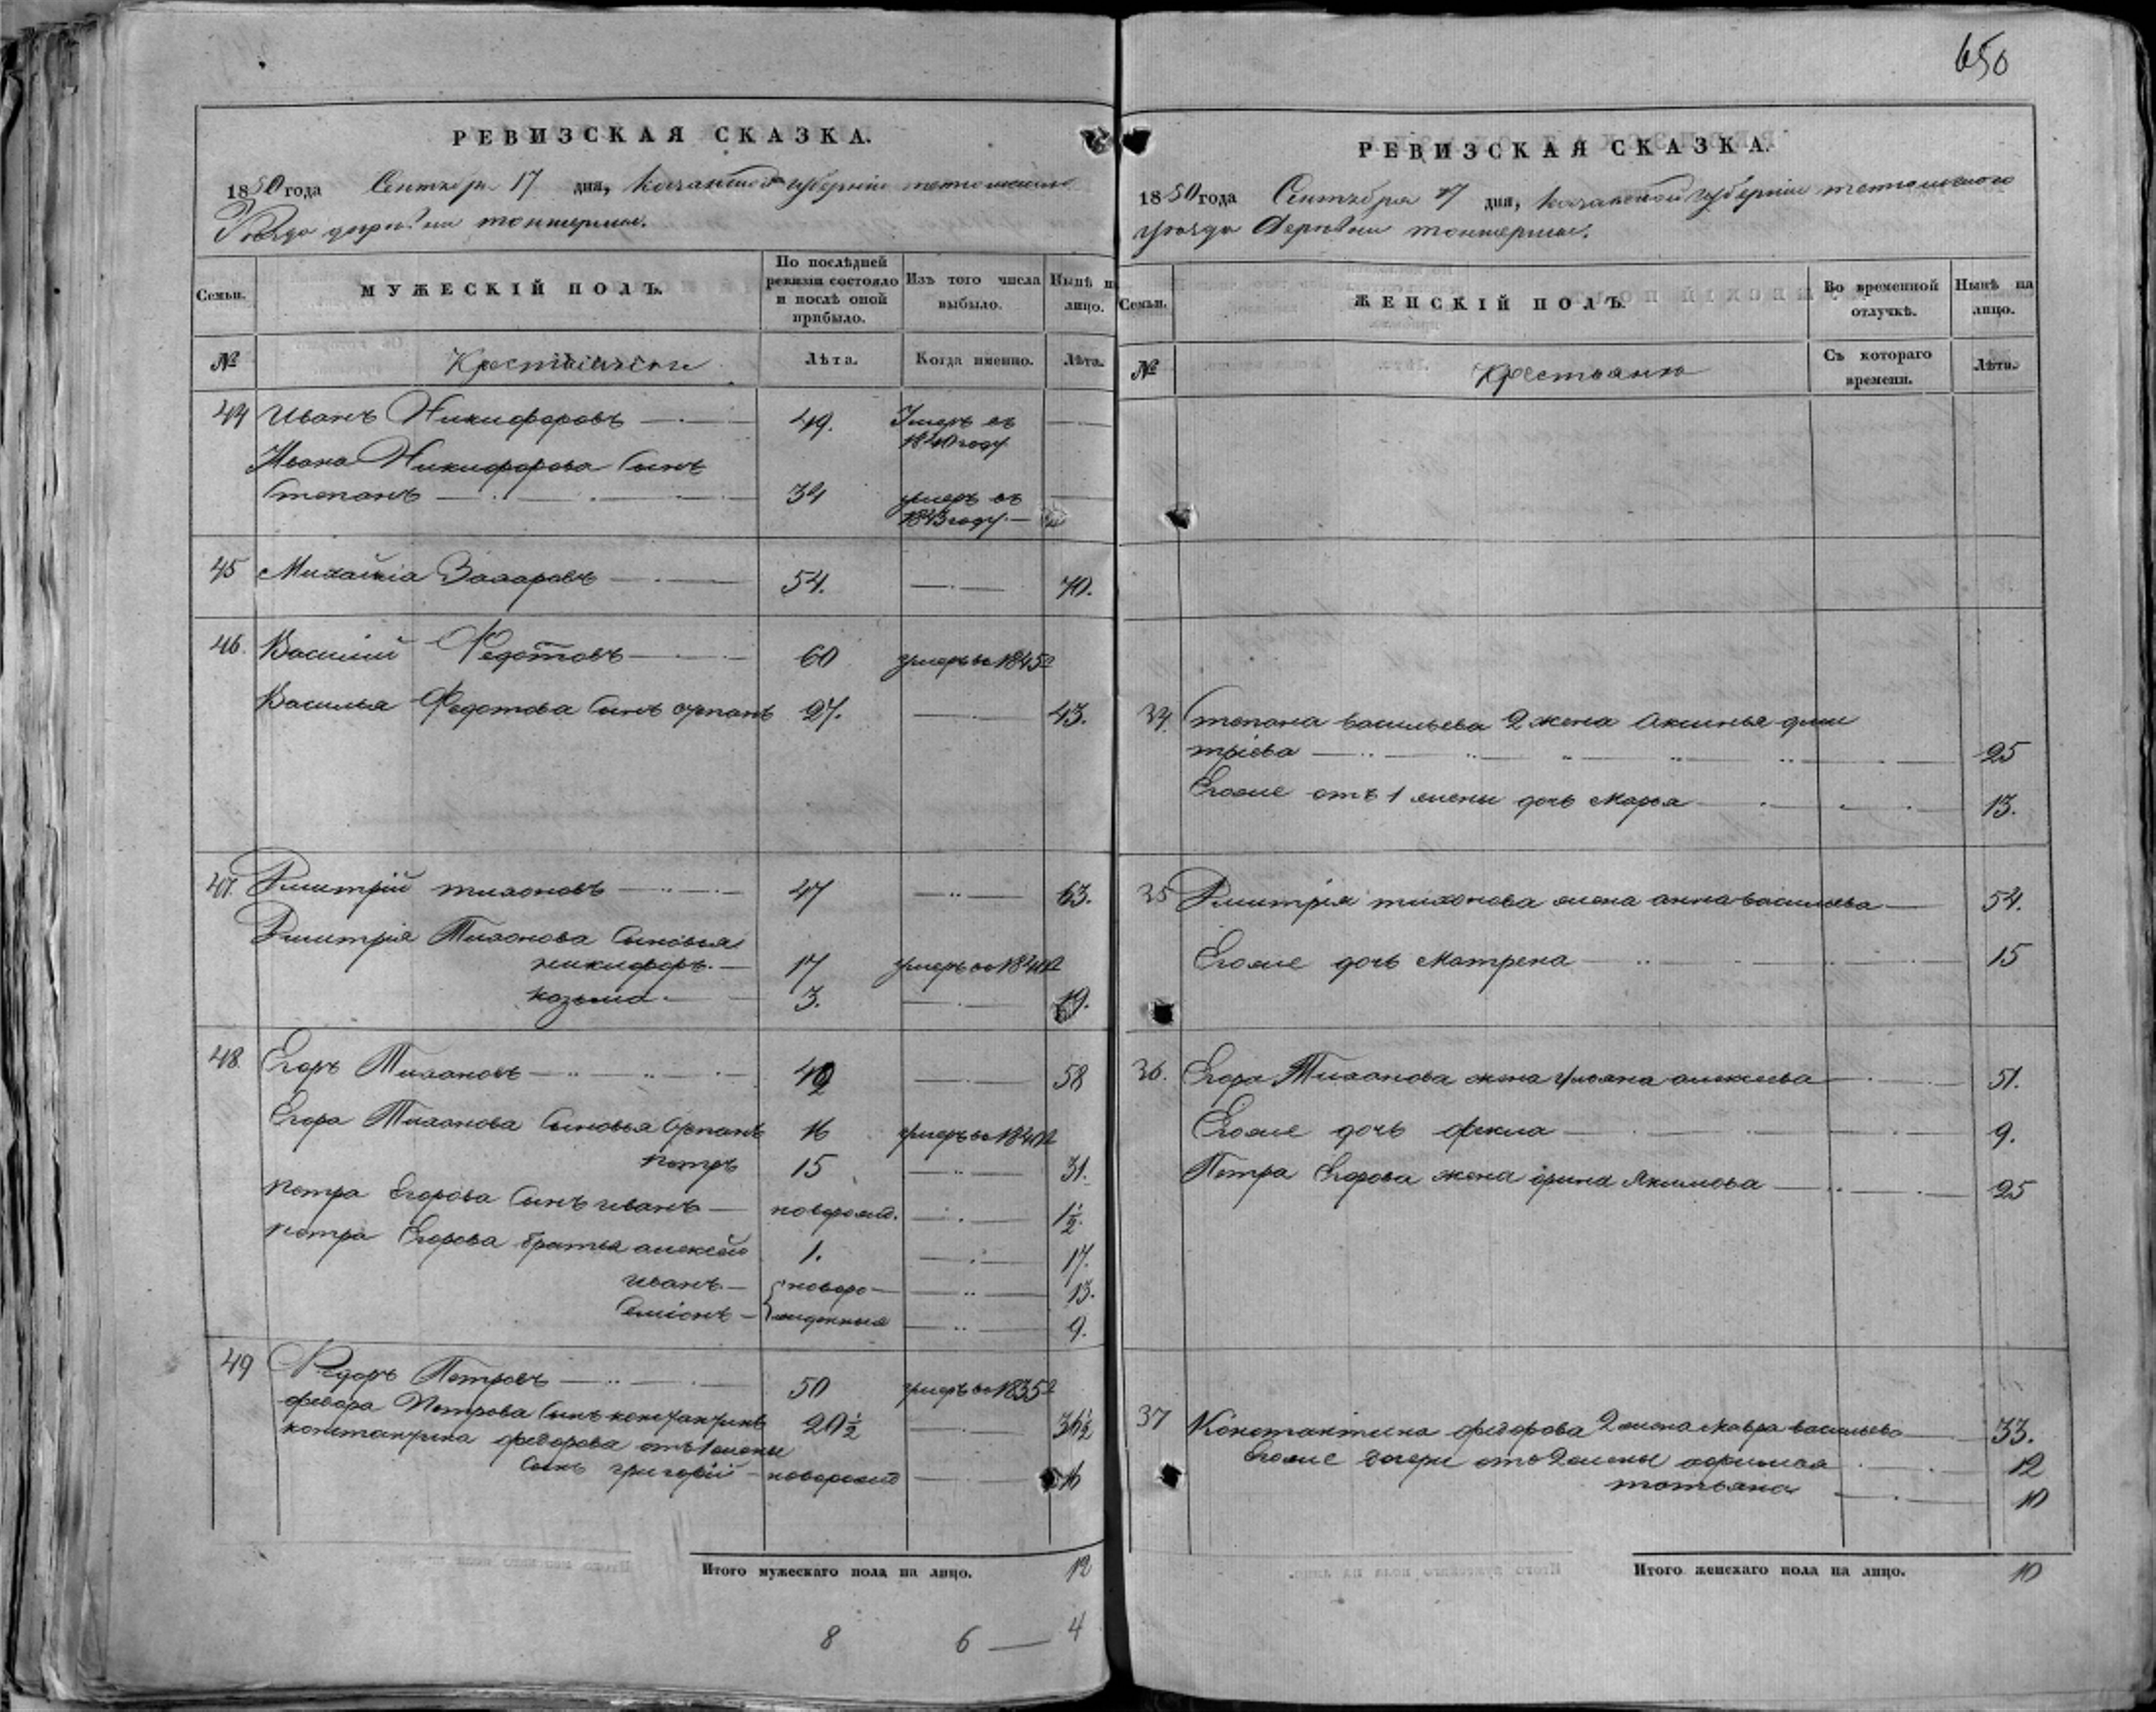 650
РЕВИЗСКАЯ СКАЗКА.
1850 года Сентября 17 дня, Казанской губернии тетюшскаго
Уезда деревни
МУЖЕСКІЙ ПОЛЪ.
По послѣдней ревизіи состояло и послѣ оной прибыло.
Изъ того числа выбыло.
Нынѣ на лицо.
Семьи.
№
Лѣта.
Когда именно.
Лѣта.
44 Иванъ Никифоровъ 49. Умеръ въ
1840 году
Ивана Никифорова Сынъ
Степанъ 34 умеръ въ
1843 году
45 Михайла Захаровъ 54. 70.
46. Василій Федотовъ 60 умеръ въ 1845
Василья Федотова Сынъ 27. 43.
47. Дмитрій тихоновъ 47 63.
Дмитрія Тихонова Сыновья
никифоръ. 17 умеръ во
козьма. 3. 19.
48. Егоръ Тихоновъ 42 58
Егора Тихонова Сыновья 16 умеръ во
петръ 15 31.
петра Егорова Сынъ иванъ новорожд. 1½
петра Егорова братья алексей 1. 17.
иванъ новоро 13.
Симіонъ жденныя 9.
49 Федоръ Петровъ 50 умеръ во 1835
федора Петрова Сынъ константинъ 20½ 36½
константина федорова отъ 1 жены
Сынъ григорій новорожд 16
Итого мужескаго пола на лицо. 12
8 6 4
РЕВИЗСКАЯ СКАЗКА.
1850 года Сентября 17 дня, казанской губерніи тетюшскаго
уезда Деревни
Семьи.
ЖЕНСКІЙ ПОЛЪ.
Во временной отлучкѣ.
Нынѣ на лицо.
№
Крестьянки
Съ котораго времени.
Лѣта.
34. степана васильева 2 жена Аксинья дми
тріева 25
Егоже отъ 1 жены дочь Марья 13.
35 Дмитрія тихонова жена анна васильева 54.
Егоже дочь Матрена 15
36. Егора Тихонова жена ульяна алексеева 51.
Егоже дочь фекла 9.
Петра Егорова жена орина Якимова 25
37 Константина федорова 2 жена мавра васильева 33.
Егоже дочери отъ 2 жены 12
татьяна 10
Итого женскаго пола на лицо. 10